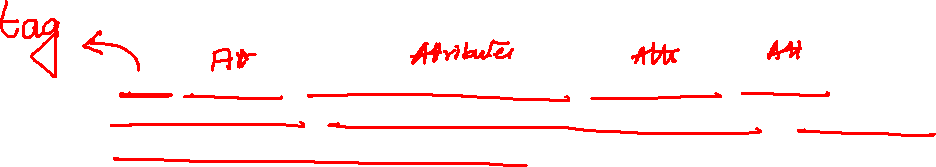 tag
Att Attributes Attr Att